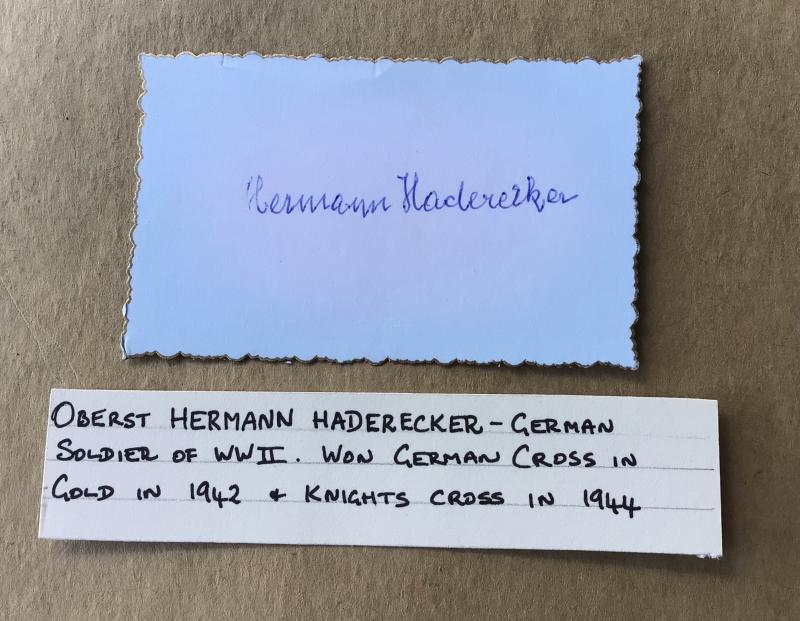 Hermann Haderecker
OBERST HERMANN HADERECKER - GERMAN
SOLDIER OF WWII. WON GERMAN CROSS IN
GOLD IN 1942 & KNIGHTS CROSS IN 1944